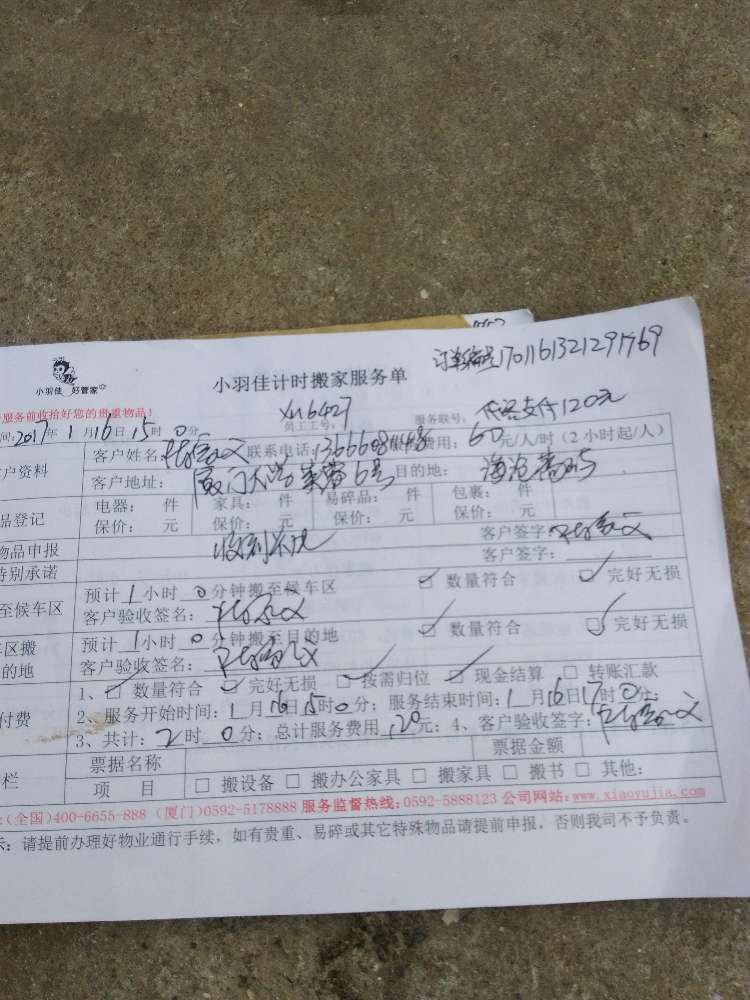 订单编号1701161321291769
小羽佳 好管家
小羽佳计时搬家服务单
服务前收拾好您的贵重物品!
员工工号: XU6427
服务联号:
网络支付120元
间:2017年1月16日15时0分
户资料
客户姓名:
联系电话:
费用:60元/人/时(2小时起/人)
客户地址:厦门大学
6号
目的地:海沧
品登记
电器: 件 家具: 件 易碎品: 件 包裹: 件
保价: 元 保价: 元 保价: 元 保价: 元
物品申报
客户签字:
特别承诺
客户签字:
至候车区
预计1小时0分钟搬至候车区 数量符合 完好无损
客户验收签名:
区搬
的地
预计1小时0分钟搬至目的地 数量符合 完好无损
客户验收签名:
付费
1、 数量符合 完好无损 按需归位 现金结算 转账汇款
2、服务开始时间:1月16日15时0分;服务结束时间:1月16日17时0分;
3、共计:2时0分;总计服务费用120元;4、客户验收签字:
栏
票据名称
票据金额
项 目
搬设备 搬办公家具 搬家具 搬书 其他:
:(全国)400-6655-888 (厦门)0592-5178888 服务监督热线:0592-5888123 公司网站:www.xiaoyujia.com
示:请提前办理好物业通行手续,如有贵重、易碎或其它特殊物品请提前申报,否则我司不予负责。